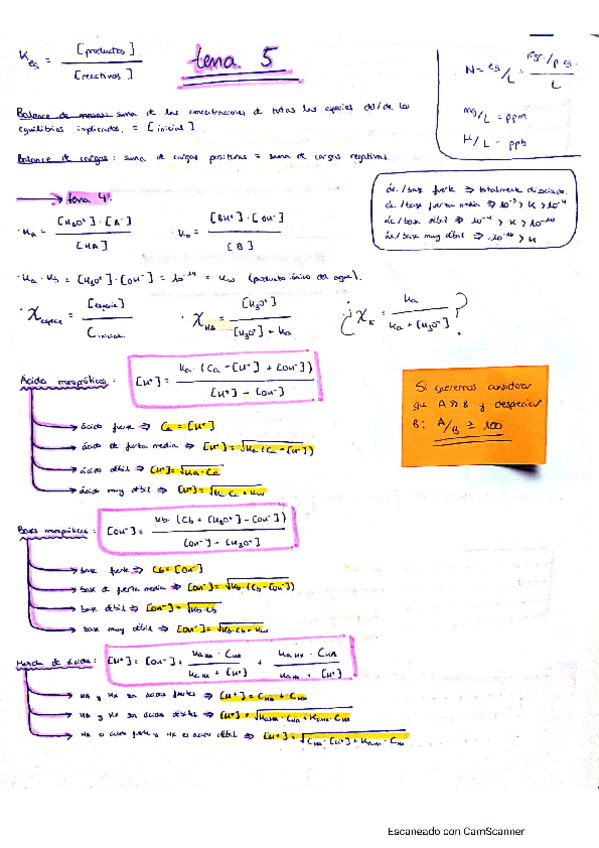 Keq = [productos] / [reactivos]
tema 5
N = eq/L = mgr./p eq. / L
mg/L = ppm
μ/L = ppb
Balance de masas: suma de las concentraciones de todas las especies del/de los
equilibrios implicados. = [inicial]
Balance de cargas: suma de cargas positivas = suma de cargas negativas.
ác./base fuerte ⇒ totalmente disociado.
ác./base fuerza media ⇒ 10⁻³ > K > 10⁻⁴
ác/base débil ⇒ 10⁻⁴ > K > 10⁻¹⁰
ác/base muy débil ⇒ 10⁻¹⁰ > K
→ tema 4.
· Ka = [H3O⁺]·[A⁻] / [HA] · Kb = [BH⁺]·[OH⁻] / [B]
· Ka · Kb = [H3O⁺]·[OH⁻] = 10⁻¹⁴ = Kw (producto iónico del agua).
· χespecie = [especie] / Cinicial · χHA = [H3O⁺] / [H3O⁺] + Ka ¿χA = Ka / Ka + [H3O⁺]?
Ácidos monopróticos: [H⁺] = Ka · (Ca - [H⁺] + [OH⁻]) / [H⁺] - [OH⁻]
Si queremos considerar
que A≫B y despreciar
B: A/B ≥ 100
→ ácido fuerte ⇒ Ca = [H⁺]
→ ácido de fuerza media ⇒ [H⁺] = √Ka (Ca - [H⁺])
→ ácido débil ⇒ [H⁺] = √Ka · Ca
→ ácido muy débil ⇒ [H⁺] = √Ka Ca + Kw
Bases monopróticas: [OH⁻] = Kb · (Cb + [H3O⁺] - [OH⁻]) / [OH⁻] - [H3O⁺]
→ base fuerte ⇒ Cb = [OH⁻]
→ base de fuerza media ⇒ [OH⁻] = √Kb · (Cb - [OH⁻])
→ base débil ⇒ [OH⁻] = √Kb · Cb
→ base muy débil ⇒ [OH⁻] = √Kb · Cb + Kw
Mezcla de ácidos: [H⁺] = [OH⁻] + KaHA · CHA / KaHA + [H⁺] + KaHX · CHX / KaHX + [H⁺]
→ HA y HX son ácidos fuertes ⇒ [H⁺] = CHA + CHX
→ HA y HX son ácidos débiles ⇒ [H⁺] = √KaHA · CHA + KaHX · CHX
→ HA es ácido fuerte y HX es ácido débil ⇒ [H⁺] = √CHA · [H⁺] + KaHX · CHX
Escaneado con CamScanner